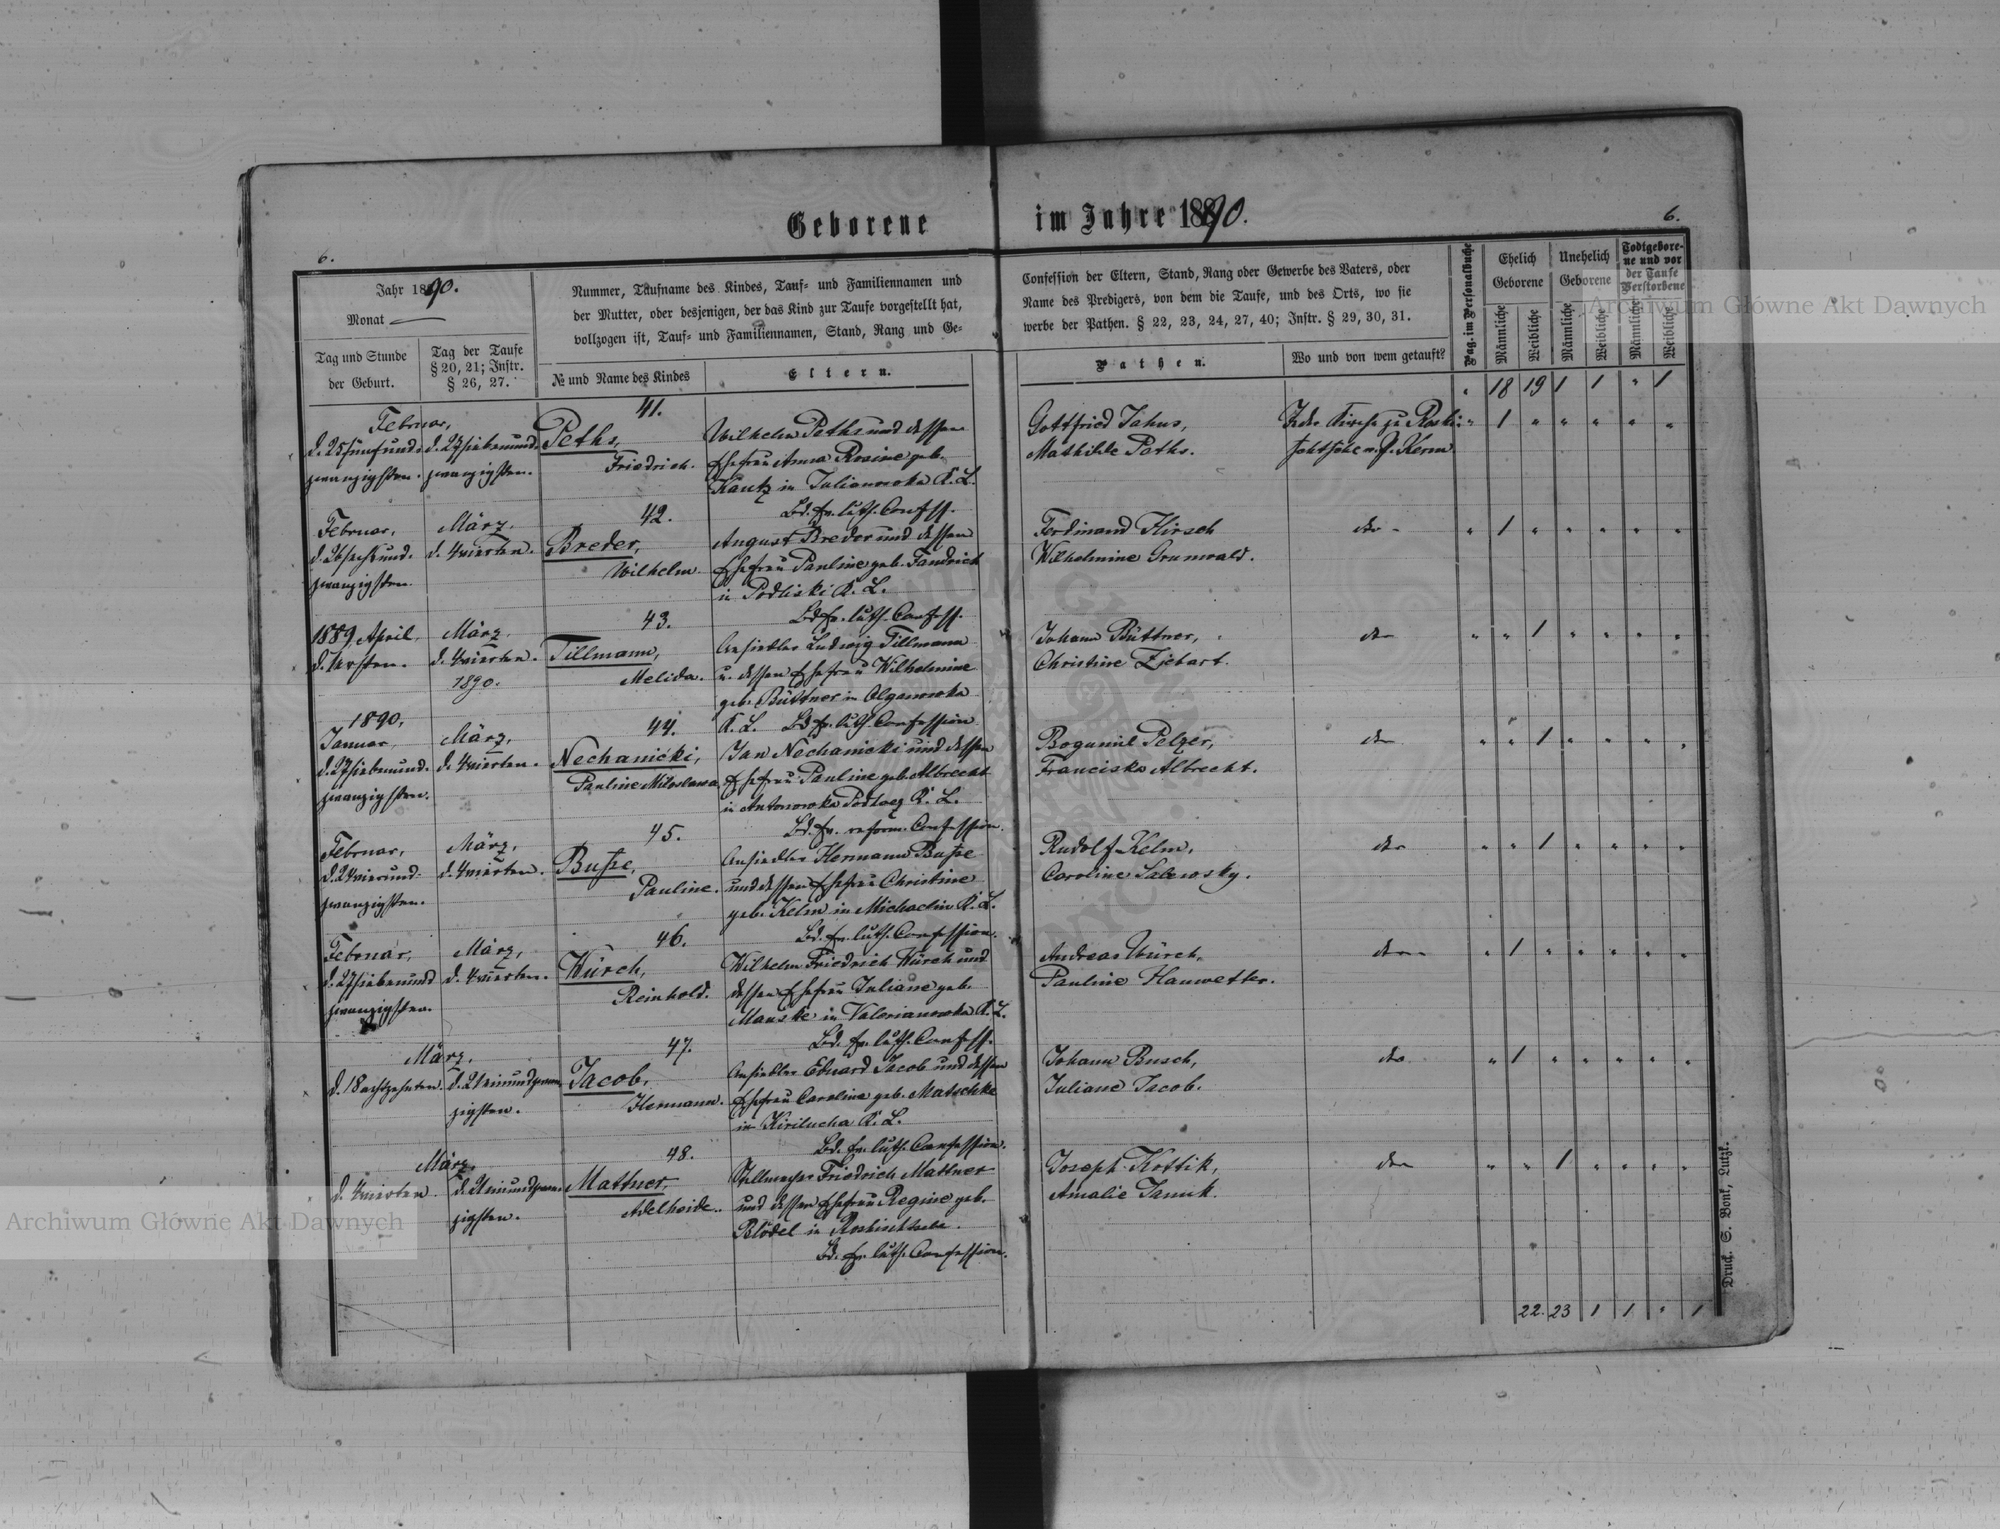 Geborene im Jahre 1890.
6. 6.
Jahr 1890.
Monat
Tag und Stunde
der Geburt.
Tag der Taufe
§ 20, 21; Instr.
§ 26, 27.
Nummer, Taufname des Kindes, Tauf= und Familiennamen und
der Mutter, oder desjenigen, der das Kind zur Taufe vorgestellt hat,
vollzogen ist, Tauf= und Familiennamen, Stand, Rang und Ge=
№ und Name des Kindes
Eltern.
Confession der Eltern, Stand, Rang oder Gewerbe des Vaters, oder
Name des Predigers, von dem die Taufe, und des Orts, wo sie
werbe der Pathen. § 22, 23, 24, 27, 40; Instr. § 29, 30, 31.
Pathen.
Wo und von wem getauft?
Pag. im Personalbuche
Ehelich
Geborene
Unehelich
Geborene
Todtgebore=
ne und vor
der Taufe
Verstorbene
Männliche
Weibliche
Männliche
Weibliche
Männliche
Weibliche
" 18 19 1 1 " 1
Februar,
d. 25 fünfund=
zwanzigsten.
d. 27 siebenund=
zwanzigsten.
41.
Peths,
Friedrich.
Wilhelm Peths und dessen
Ehefrau Anna Rosine geb.
Kautz in Julianowka K. L.
Bd. ev. luth. Confess.
Gottfried Jahns,
Mathilde Peths.
In der Kirche zu Roshi=
v. P. Kerm
" 1 " " " " "
Februar,
d. 26 sechsund=
zwanzigsten.
März,
d. 4 vierten.
42.
Breder,
Wilhelm.
August Breder und dessen
Ehefrau Pauline geb. Fandrich
in Podliski K. L.
Bd. ev. luth. Confess.
Ferdinand Hirsch
Wilhelmine Grunwald.
dto
" 1 " " " " "
1889. April,
d. 1 ersten.
März,
d. 4 vierten.
1890.
43.
Tillmann,
Melida.
Ansiedler Ludwig Tillmann
u. dessen Ehefrau Wilhelmine
geb. Büttner in Olganowka
K. L. Bd. ev. luth. Confession
Johann Büttner,
Christine Ziebart.
dto
" " 1 " " " "
1890,
Januar,
d. 27 siebenund=
zwanzigsten.
März,
d. 4 vierten.
44.
Nechanicki,
Pauline Miloslawa.
Jan Nechanicki und dessen
Ehefrau Pauline geb. Albrecht
in Antonowka Podloez K. L.
Bd. ev. reform. Confession.
Bogumil Pelzer,
Franciska Albrecht.
dto
" " 1 " " " "
Februar,
d. 24 vierund=
zwanzigsten.
März,
d. 4 vierten.
45.
Buße,
Pauline.
Ansiedler Hermann Buße
und dessen Ehefrau Christine
geb. Kelm in Michaelin K. L.
Bd. ev. luth. Confession.
Rudolf Kelm,
Caroline Salewsky.
dto
" " 1 " " " "
Februar,
d. 27 siebenund
zwanzigsten.
März,
d. 4 vierten.
46.
Würch,
Reinhold.
Wilhelm Friedrich Würch und
dessen Ehefrau Juliane geb.
Manske in Valerianowka K. L.
Bd. ev. luth. Confess.
Andreas Würch,
Pauline Hauwetter.
dto
" 1 " " " " "
März,
d. 18 achtzehnten.
d. 21 einundzwan=
zigsten.
47.
Jacob,
Hermann.
Ansiedler Eduard Jacob und dessen
Ehefrau Caroline geb. Matschke
in Kirilucha K. L.
Bd. ev. luth. Confession.
Johann Busch,
Juliane Jacob.
dto
" 1 " " " " "
März,
d. 4 vierten.
d. 21 einundzwan=
zigsten.
48.
Mattner,
Adelheide.
Stellmacher Friedrich Mattner
und dessen Ehefrau Regine geb.
Blödel in
Bd. ev. luth. Confession.
Joseph Kostik,
Amalie Janik.
dto
" " 1 " " " "
22. 23 1 1 " 1
Druck. S. Bonk, Lutzk.
Archiwum Główne Akt Dawnych
Archiwum Główne Akt Dawnych